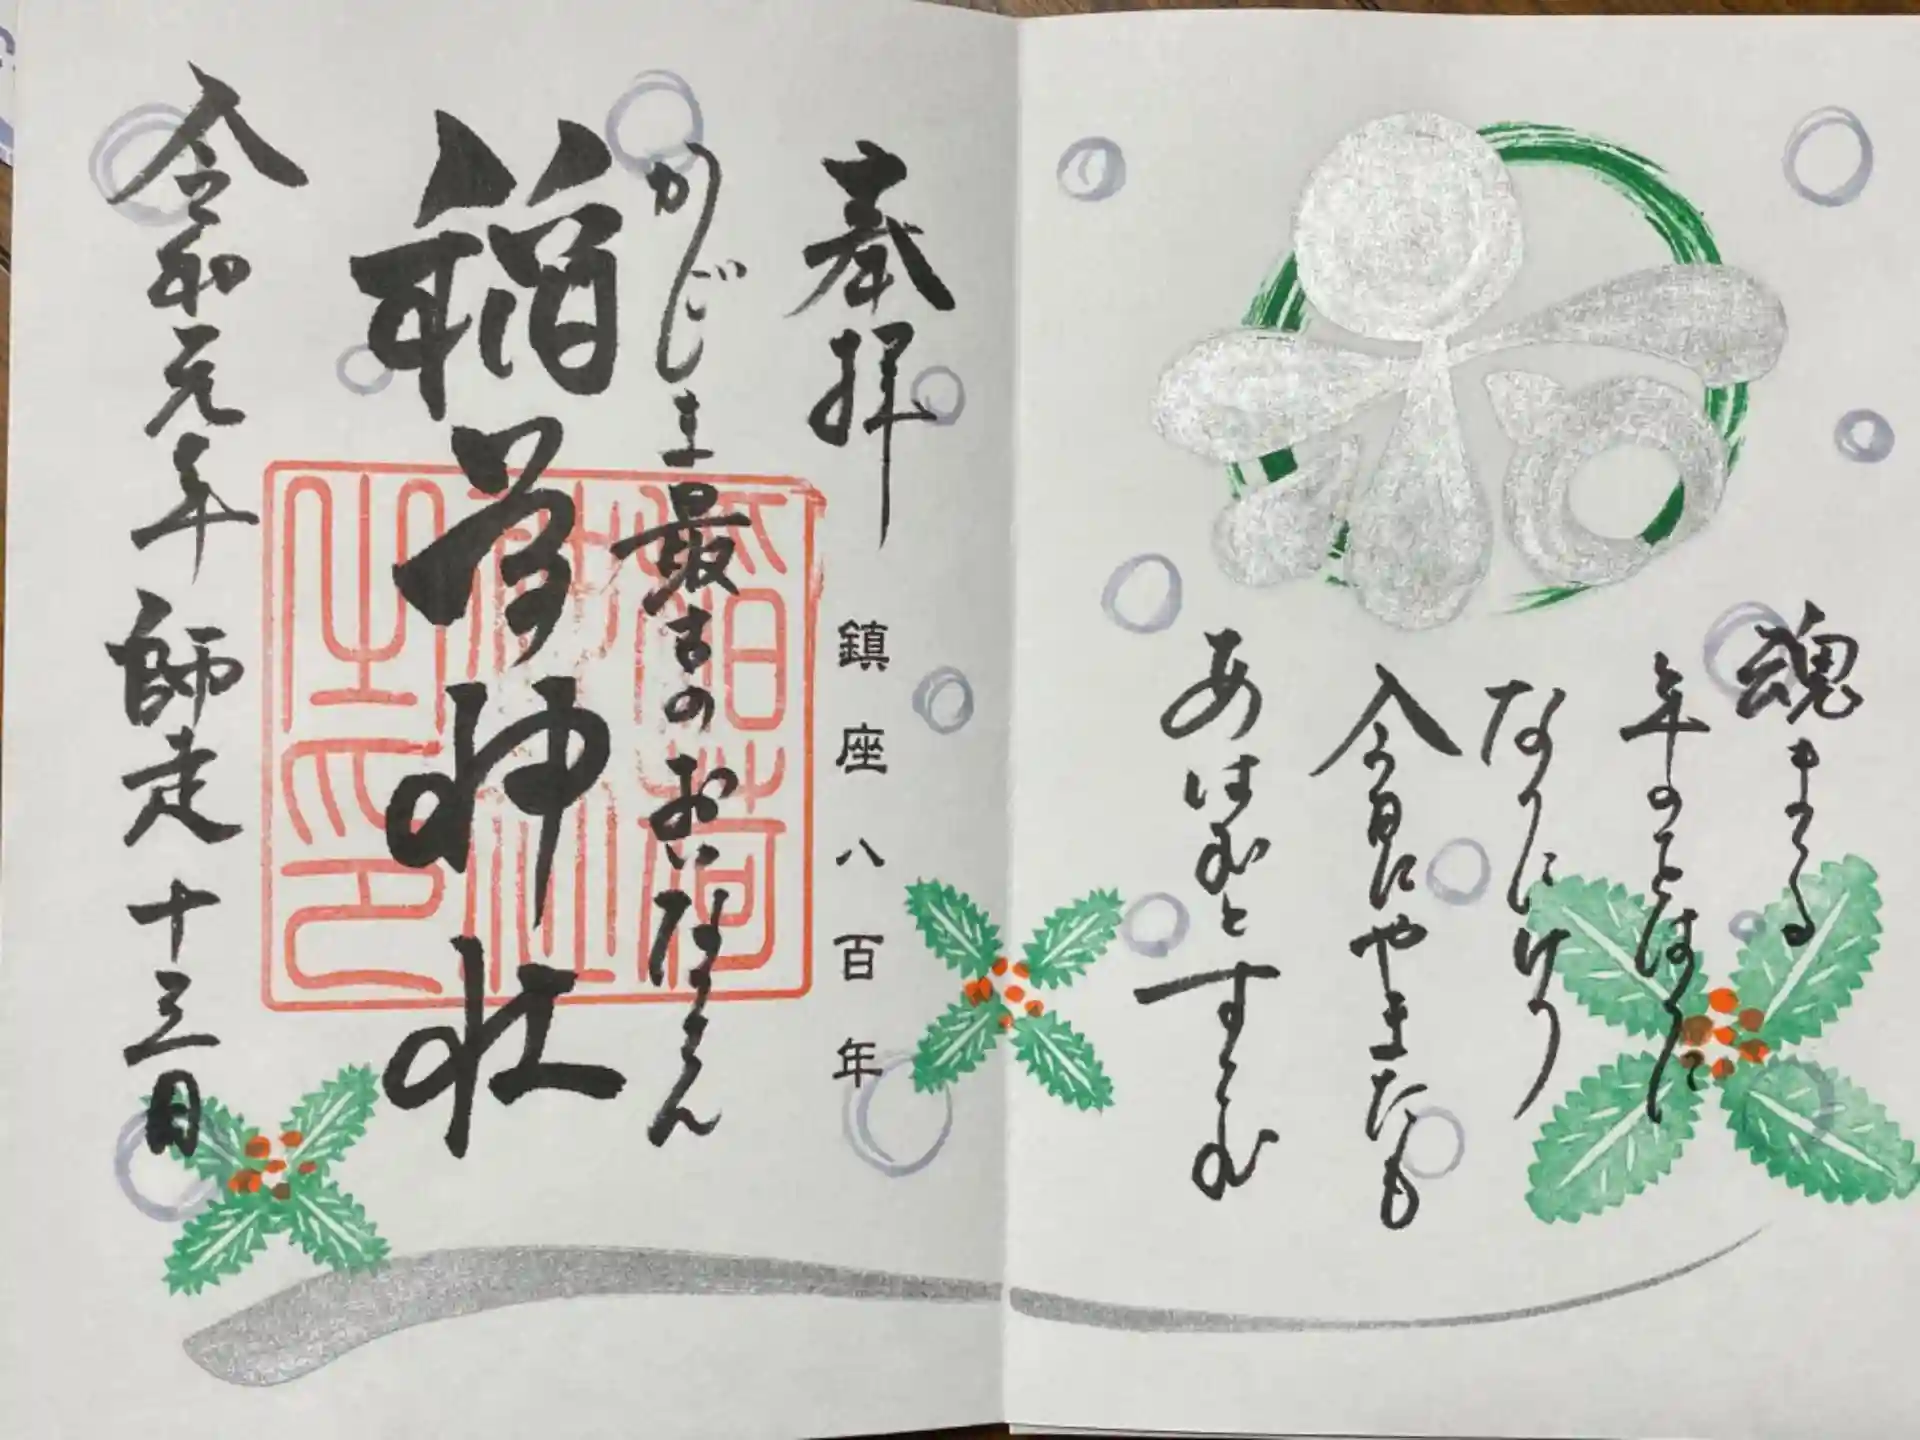 魂まつる
年のをはりに
なりにけり
今日にやまたも
あはむとすらむ
奉拝
鎮座八百年
かごしま最古のおいなりさん
稲荷神社
稲荷神社之印
令和元年 師走 十三日